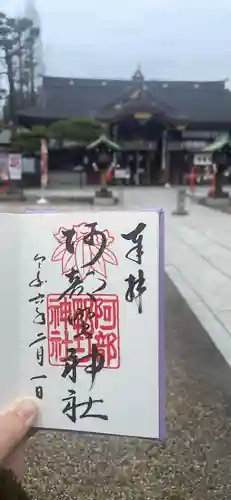 奉拝
阿部野神社
阿部
野神社
令和六年二月一日